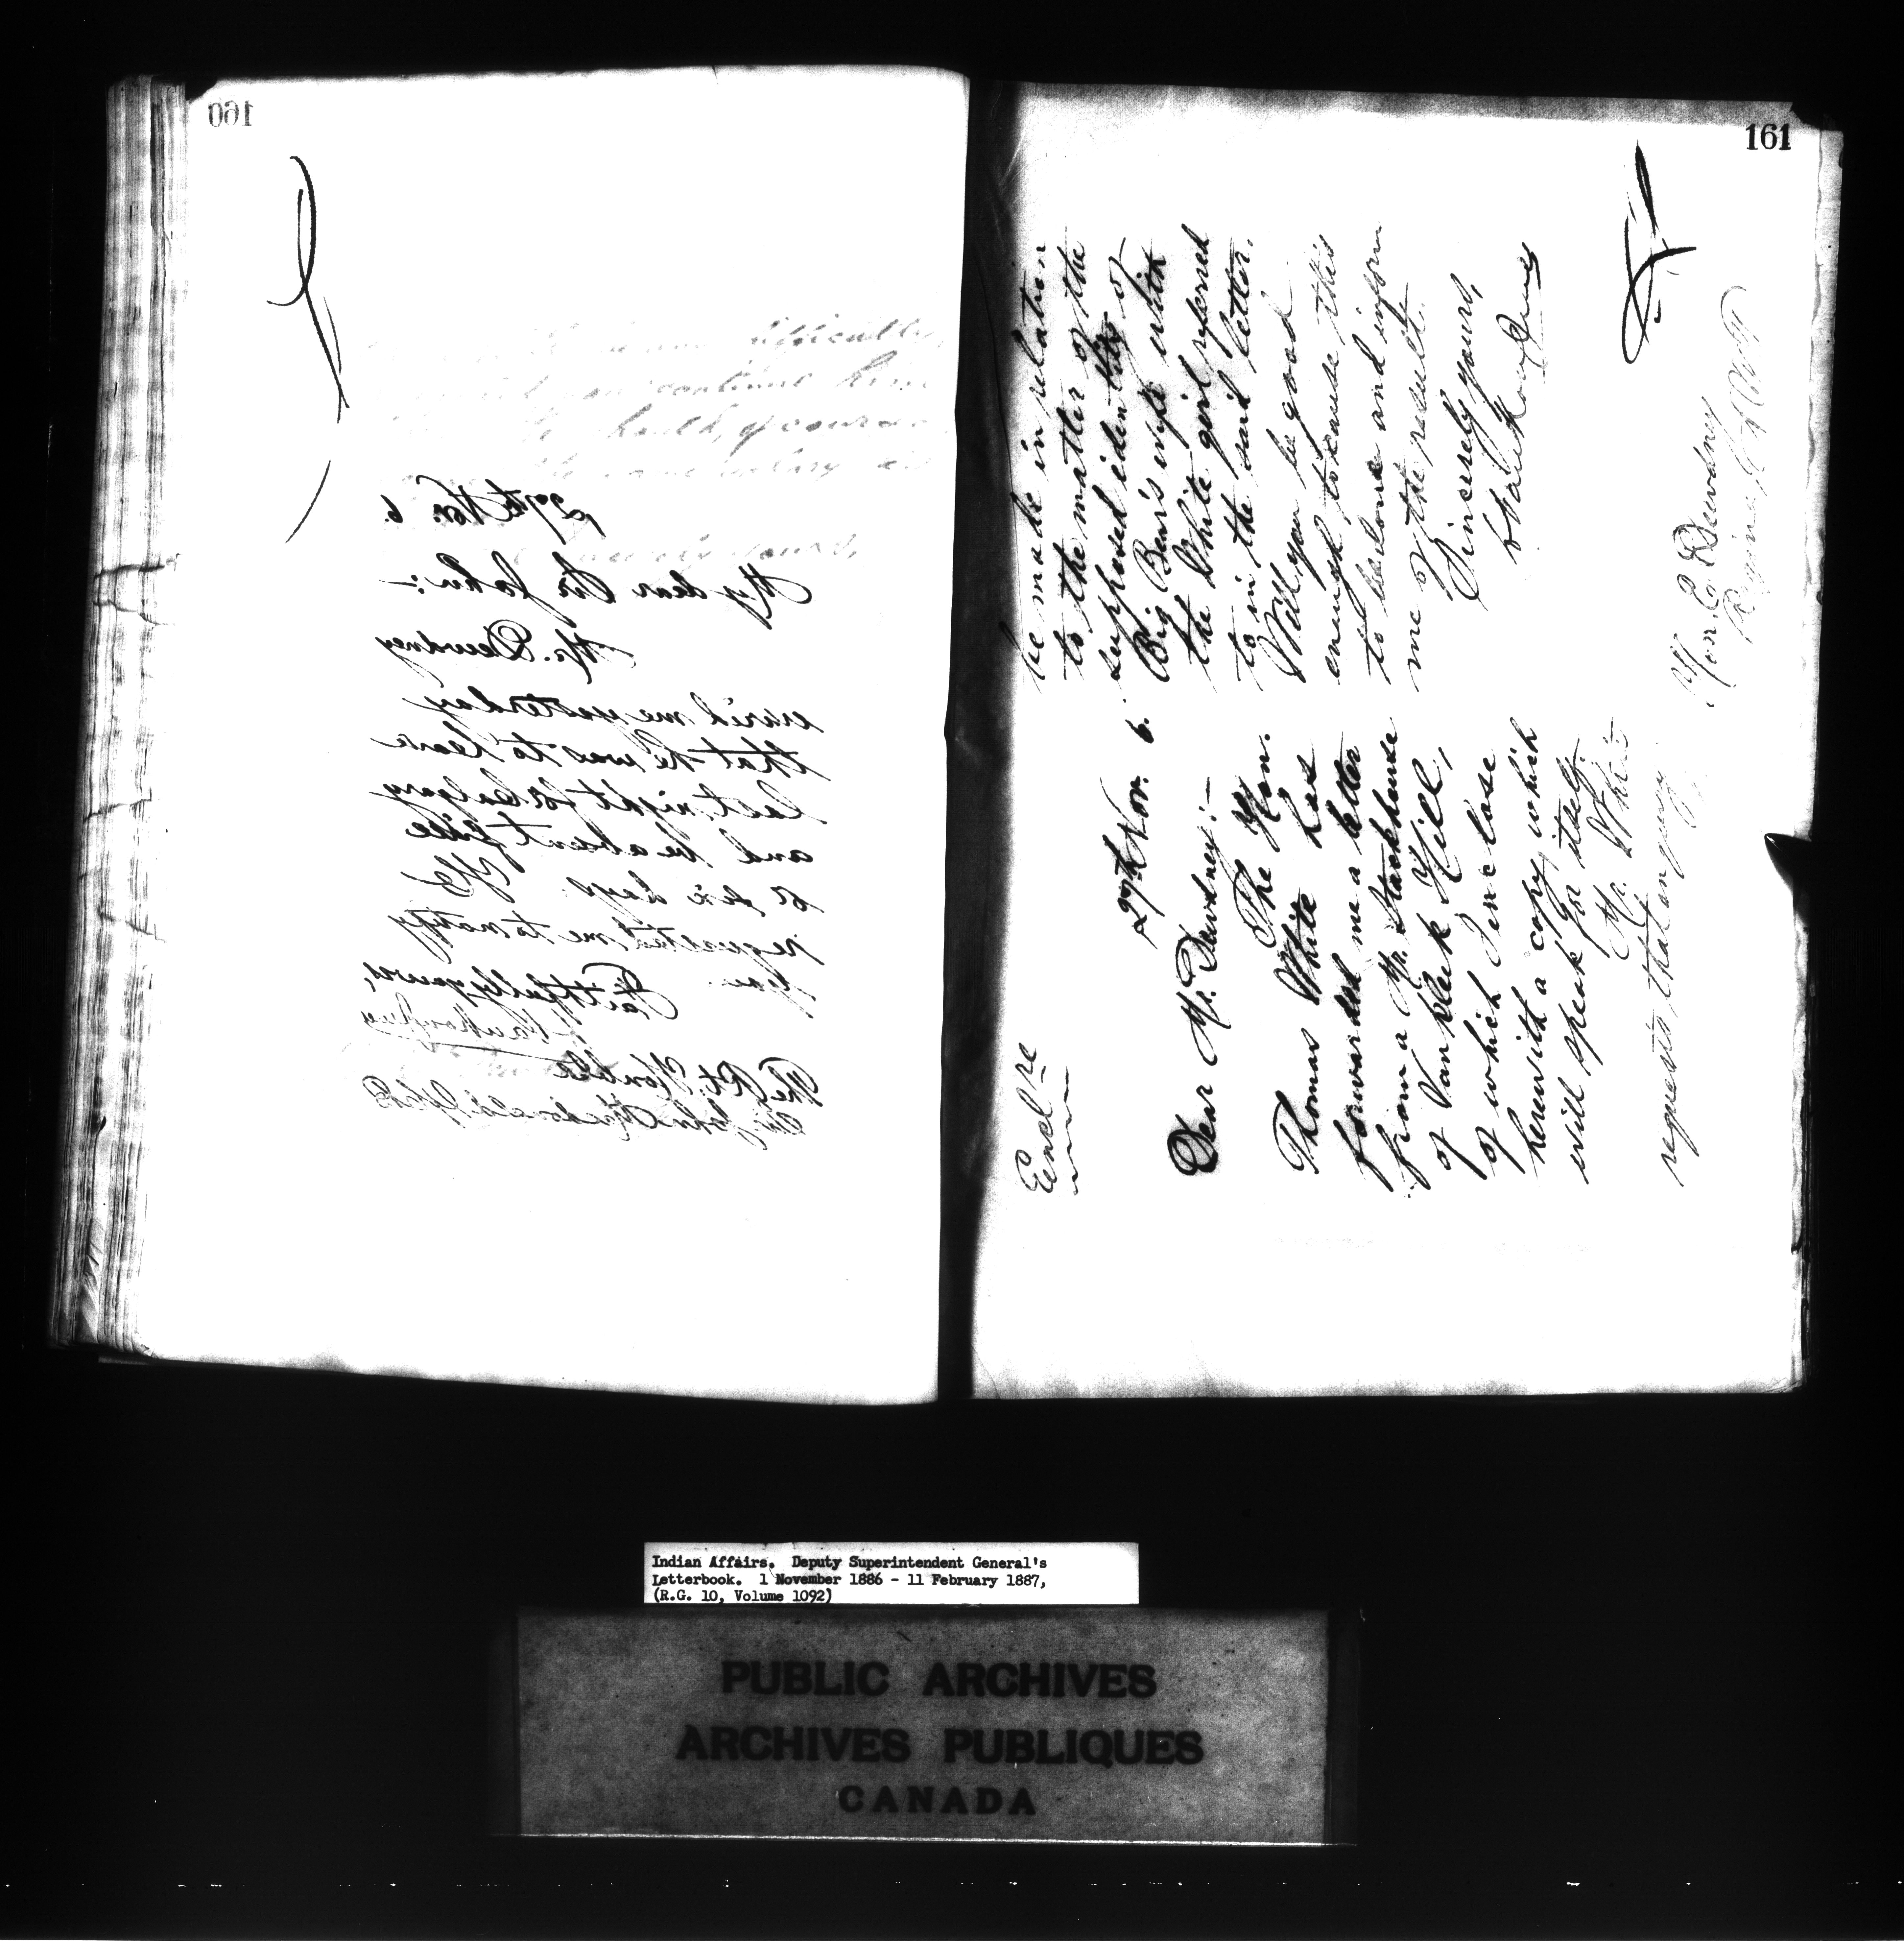 160
27th Nov. 6.
My dear Sir John:-
Mr. Dewdney
wired me yesterday
that he was to leave
last night for Calgary
and be absent five
or six days. He
requested me to notify
you.
Faithfully yours,
Vankoughnet
The Rt. Honble
Sir John Macdonald
difficulty
continue
health, of course
yours,
161
Encl re
27th Nov. 6.
Dear Mr. Dewdney:-
The Hon.
Thomas White has
forwarded me a letter
from a Mr. Stackhouse
of Vankleek Hill,
of which I enclose
herewith a copy which
will speak for itself.
Mr. White
requests that enquiry
be made in relation
to the matter of the
supposed identity of
Big Bear's wife with
the White girl referred
to in the said letter.
Will you be good
enough to cause this
to be done and inform
me of the result.
Sincerely yours,
Vankoughnet
Hon. E. Dewdney
Regina, N.W.T.
Indian Affairs. Deputy Superintendent General's
Letterbook. 1 November 1886 - 11 February 1887,
(R.G. 10, Volume 1092)
PUBLIC ARCHIVES
ARCHIVES PUBLIQUES
CANADA